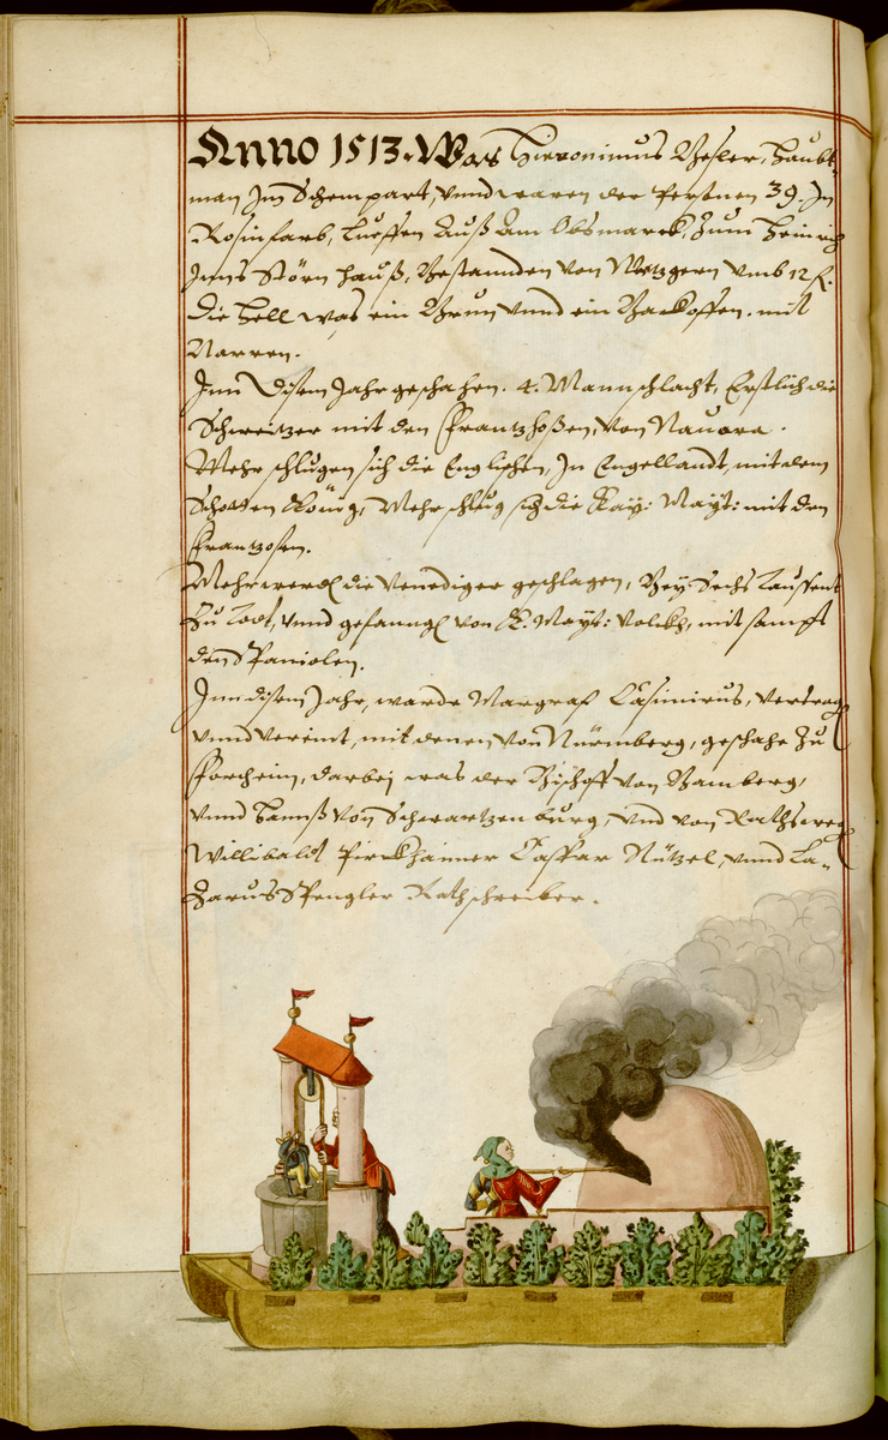 Anno 1513. Was Hieronimus Vesler, Haubt-
man Im Schempart, vnnd waren der Persnen 39. In
Rosinfarb, Lueffen Auß Am Obsmarck, Zum Heinrich
Inns Störn Hauß, Bestannden von Metzgern vmb 12 fl.
Die Hell was ein Brun vnnd ein Backoffen. mit
Narren.
Inn Disem Jahr geschahen. 4. Mannschlacht, Erstlich die
Schweitzer mit den Frantzhoßen, von Nauara.
Mehr schlugen sich die Englischen, In Engellandt, mit dem
Schotten König, Mehr schlug sich die Kay: Mayt: mit den
Frantzosen.
Mehr werdn die Venediger geschlagen, Bey Sechs Taussent
Zu Todt, vnnd gefanngn von K. Mayt: Volckh, mit sampt
den Spaniolen.
Inn disem Jahr, warde Margraf Casimirus, Vertragn
vnnd vereint, mit denen von Nürmberg, geschahe Zu
Forcheim, darbej was der Bischoff von Bamberg,
vnnd Hannß von Schwartzenburg, vnd von Raths wegn
Willibaldt Pirckhaimer Caspar Nützel, vnnd La-
Zarus Spengler Rathschreiber.